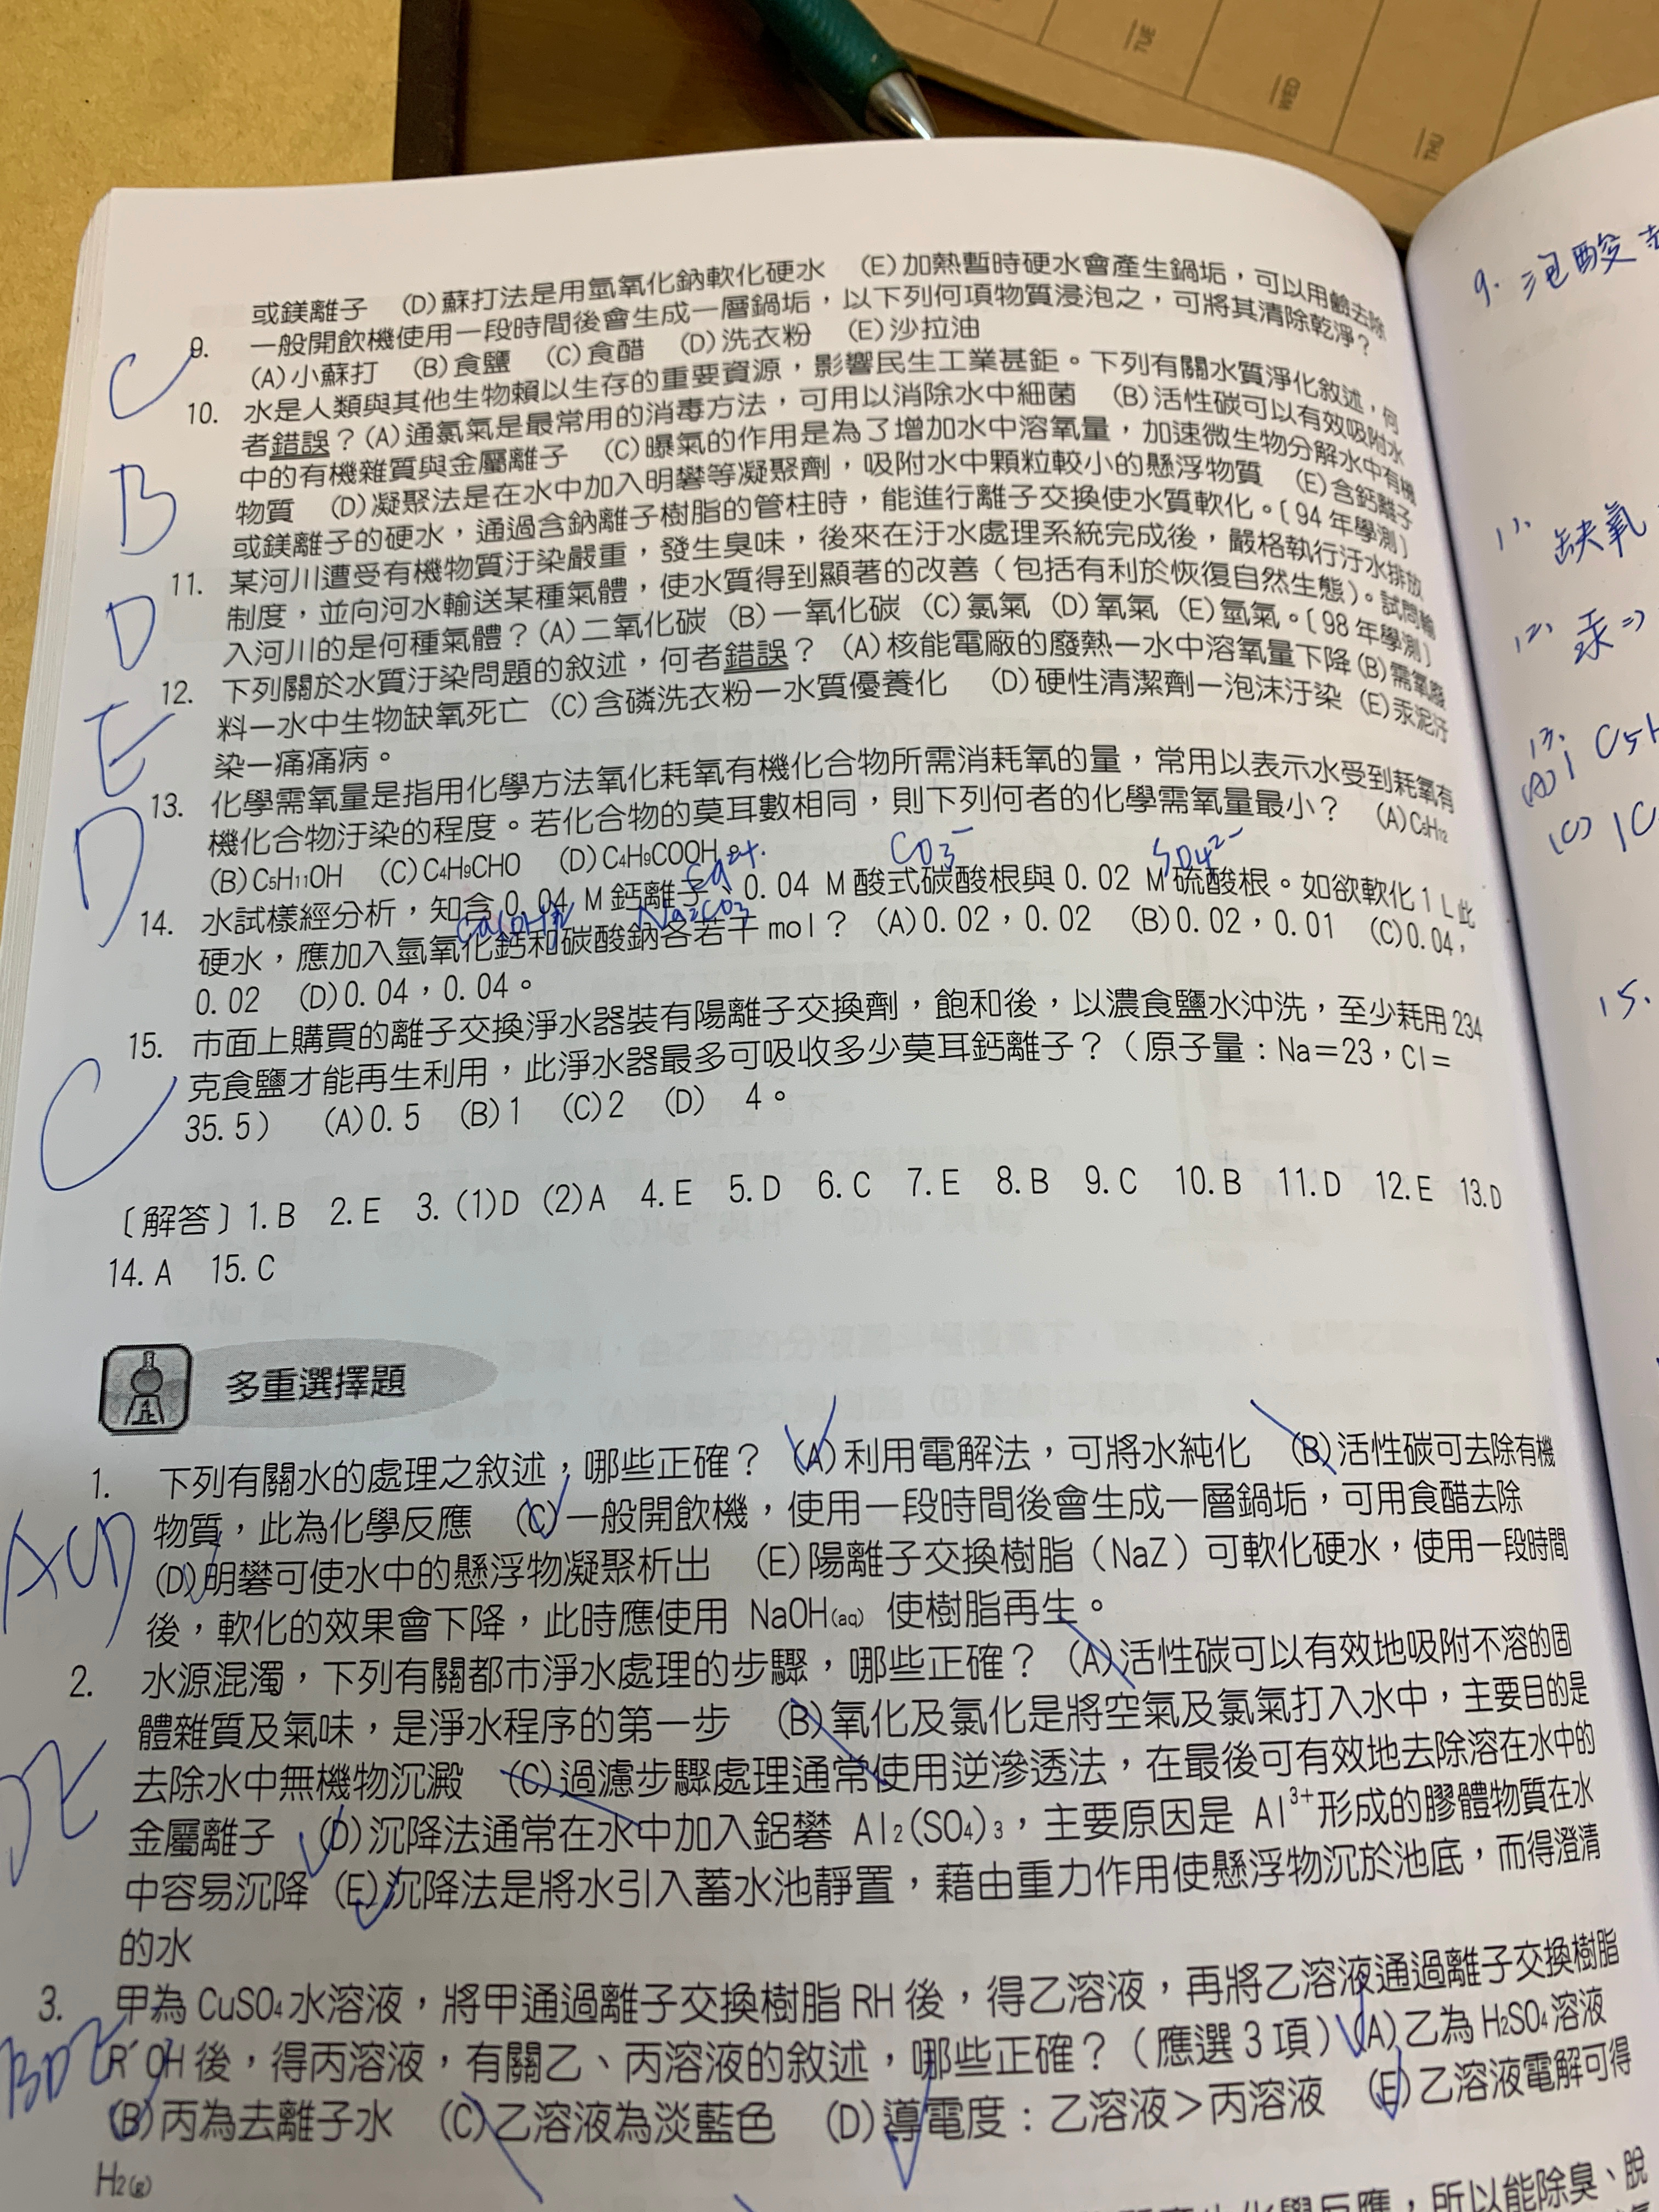 TUE
WED
THU
或鎂離子 (D)蘇打法是用氫氧化鈉軟化硬水 (E)加熱暫時硬水會產生鍋垢，可以用鹼去除
9. 一般開飲機使用一段時間後會生成一層鍋垢，以下列何項物質浸泡之，可將其清除乾淨？
(A)小蘇打 (B)食鹽 (C)食醋 (D)洗衣粉 (E)沙拉油
C
10. 水是人類與其他生物賴以生存的重要資源，影響民生工業甚鉅。下列有關水質淨化敘述，何
者錯誤？(A)通氯氣是最常用的消毒方法，可用以消除水中細菌 (B)活性碳可以有效吸附水
中的有機雜質與金屬離子 (C)曝氣的作用是為了增加水中溶氧量，加速微生物分解水中有機
物質 (D)凝聚法是在水中加入明礬等凝聚劑，吸附水中顆粒較小的懸浮物質 (E)含鈣離子
或鎂離子的硬水，通過含鈉離子樹脂的管柱時，能進行離子交換使水質軟化。〔94年學測〕
B
11. 某河川遭受有機物質汙染嚴重，發生臭味，後來在汙水處理系統完成後，嚴格執行汙水排放
制度，並向河水輸送某種氣體，使水質得到顯著的改善（包括有利於恢復自然生態）。試問輸
入河川的是何種氣體？(A)二氧化碳 (B)一氧化碳 (C)氯氣 (D)氧氣 (E)氫氣。〔98年學測〕
D
12. 下列關於水質汙染問題的敘述，何者錯誤？ (A)核能電廠的廢熱—水中溶氧量下降(B)需氧廢
料—水中生物缺氧死亡 (C)含磷洗衣粉—水質優養化 (D)硬性清潔劑—泡沫汙染 (E)汞泥汙
染—痛痛病。
E
13. 化學需氧量是指用化學方法氧化耗氧有機化合物所需消耗氧的量，常用以表示水受到耗氧有
機化合物汙染的程度。若化合物的莫耳數相同，則下列何者的化學需氧量最小？ (A)C₅H₁₂
(B)C₅H₁₁OH (C)C₄H₉CHO (D)C₄H₉COOH。
D
Ca²⁺ CO₃⁻ SO₄²⁻
14. 水試樣經分析，知含 0.04 M 鈣離子、0.04 M 酸式碳酸根與 0.02 M 硫酸根。如欲軟化 1 L 此
Ca(OH)₂ Na₂CO₃
硬水，應加入氫氧化鈣和碳酸鈉各若干 mol？ (A)0.02，0.02 (B)0.02，0.01 (C)0.04，
0.02 (D)0.04，0.04。
15. 市面上購買的離子交換淨水器裝有陽離子交換劑，飽和後，以濃食鹽水沖洗，至少耗用 234
克食鹽才能再生利用，此淨水器最多可吸收多少莫耳鈣離子？（原子量：Na＝23，Cl＝
35.5） (A)0.5 (B)1 (C)2 (D) 4。
C
〔解答〕1.B 2.E 3.(1)D (2)A 4.E 5.D 6.C 7.E 8.B 9.C 10.B 11.D 12.E 13.D
14.A 15.C
多重選擇題
1. 下列有關水的處理之敘述，哪些正確？ (A)利用電解法，可將水純化 (B)活性碳可去除有機
物質，此為化學反應 (C)一般開飲機，使用一段時間後會生成一層鍋垢，可用食醋去除
(D)明礬可使水中的懸浮物凝聚析出 (E)陽離子交換樹脂（NaZ）可軟化硬水，使用一段時間
後，軟化的效果會下降，此時應使用 NaOH(aq) 使樹脂再生。
ACD
2. 水源混濁，下列有關都市淨水處理的步驟，哪些正確？ (A)活性碳可以有效地吸附不溶的固
體雜質及氣味，是淨水程序的第一步 (B)氧化及氯化是將空氣及氯氣打入水中，主要目的是
去除水中無機物沉澱 (C)過濾步驟處理通常使用逆滲透法，在最後可有效地去除溶在水中的
金屬離子 (D)沉降法通常在水中加入鋁礬 Al₂(SO₄)₃，主要原因是 Al³⁺形成的膠體物質在水
中容易沉降 (E)沉降法是將水引入蓄水池靜置，藉由重力作用使懸浮物沉於池底，而得澄清
的水
DE
3. 甲為 CuSO₄水溶液，將甲通過離子交換樹脂 RH 後，得乙溶液，再將乙溶液通過離子交換樹脂
R´OH 後，得丙溶液，有關乙、丙溶液的敘述，哪些正確？（應選 3 項）(A)乙為 H₂SO₄溶液
(B)丙為去離子水 (C)乙溶液為淡藍色 (D)導電度：乙溶液＞丙溶液 (E)乙溶液電解可得
H₂(g)
BDE
化學反應，所以能除臭、脫
9. 泡酸
11. 缺氧
12. 汞⇒
13.
(A) 1 C₅H
(C) 1C
15.